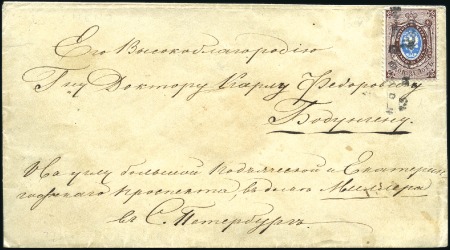 Его Высокоблагородію
Гну Доктору Карлу Федоровичу
Бодунгену.
На углу большой Подъяческой и Екатерин-
гофскаго проспекта, въ доме Миллера
въ С. Петербургъ.